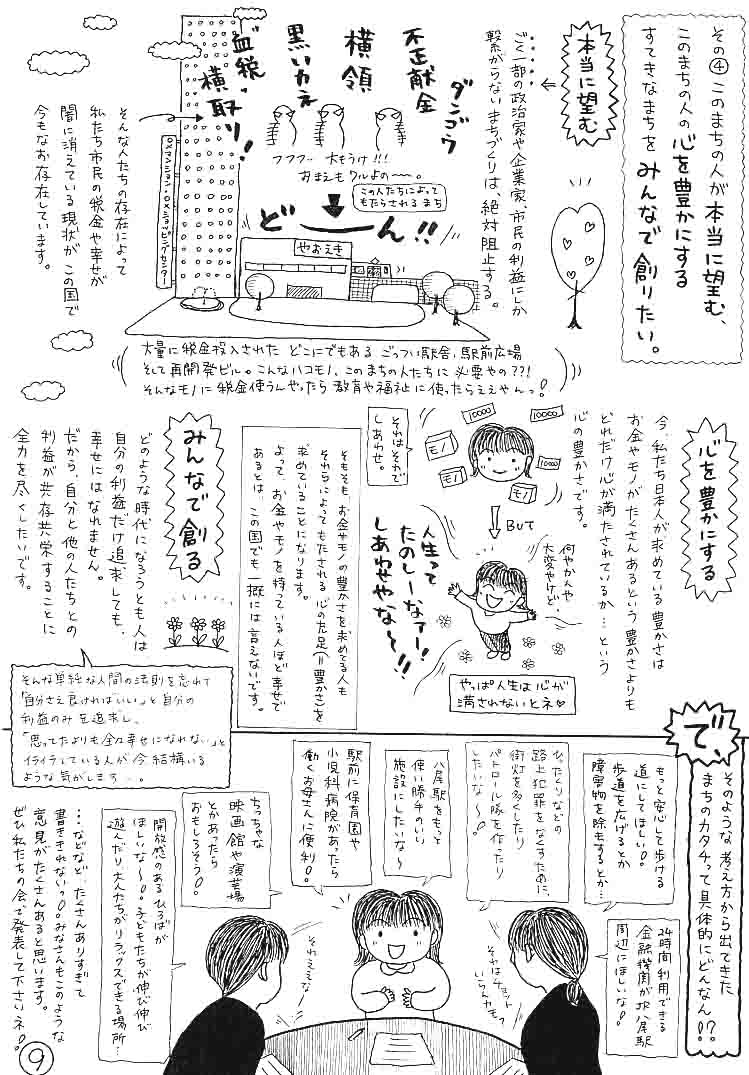 その④ このまちの人が本当に望む、
このまちの人の心を豊かにする
すてきなまちを みんなで創りたい。
本当に望む
ごく一部の政治家や企業家、市民の利益にしか
繋がらないまちづくりは、絶対阻止する。
ダンゴウ
不正献金
横領
黒いカネ
血税・
横取り!
フフフ… 大もうけ!!!
おまえもワルよの〜〜。
この人たちによって
もたらされるまち
ど ーん!!
やおえき
○×マンション・○×ショッピングセンター
そんな人たちの存在によって
私たち市民の税金や幸せが
闇に消えている現状が この国で
今もなお存在しています。
大量に税金投入された どこにでもある ごっつい駅舎、駅前広場
そして再開発ビル。こんなハコモノ、このまちの人たちに 必要やの??!
そんなモノに 税金使うんやったら 教育や福祉に使ったらええやんっ!
心を豊かにする
今、私たち日本人が求めている豊かさは
お金やモノがたくさんあるという豊かさよりも
どれだけ心が満たされているか…という
心の豊かさです。
10000
10000
10000
モノ
モノ
モノ
それはそれで
しあわせ。
BUT
何やかんや
大変やけど、
人生って
たのしーなァー!
しあわせやな〜〜!!
やっぱ人生は心が
満されないとネ♡
そもそも、お金やモノの豊かさを求めてる人も
それらによってもたらされる心の充足(=豊かさ)を
求めていることになります。
よって、お金やモノを持っている人ほど幸せで
あるとは、この国でも一概には言えないです。
みんなで創る
どのような時代になろうとも人は
自分の利益だけ追求しても、
幸せにはなれません。
だから、自分と他の人たちとの
利益が共存共栄することに
全力を尽くしたいです。
そんな単純な人間の法則を忘れて
「自分さえ良ければいい」と自分の
利益のみを追求し、
「思ってたよりも全々幸せになれない」と
イライラしている人が今結構いる
ような気がします…。
で、
そのような考え方から出てきた
まちのカタチって具体的にどんなん!?
もっと安心して歩ける
道にしてほしい!
歩道を広げるとか
障害物を除去するとか…
24時間利用できる
金融機関がJR八尾駅
周辺にほしいな!
ひったくりなどの
路上犯罪をなくすために、
街灯を多くしたり
パトロール隊を作ったり
したいな!
それはチョット
いらんかもっ
八尾駅をもっと
使い勝手のいい
施設にしたいな〜
駅前に保育園や
小児科病院があったら
働くお母さんに便利!
それええな〜
ちっちゃな
映画館や演芸場
とかがあったら
おもしろそう!
開放感のあるひろばが
ほしいな〜!子どもたちが伸び伸び
遊んだり、大人たちがリラックスできる場所…
…などなど たくさんありすぎて
書ききれないっ!みなさんもこのような
意見がたくさんあると思います。
ぜひ私たちの会で発表して下さいネ!
9